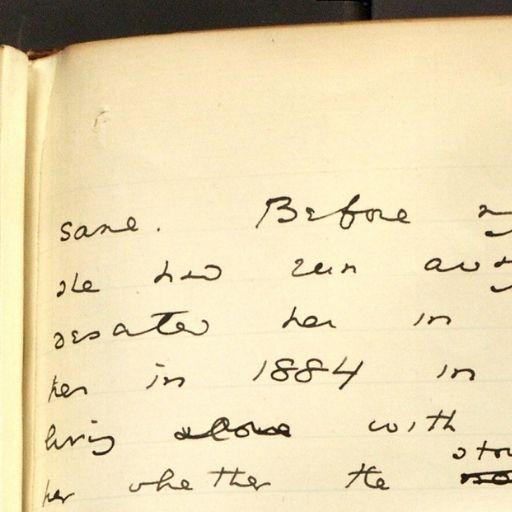 sane. Before
she had run
deserted her in
her in 1884 in
living alone with
her whether the